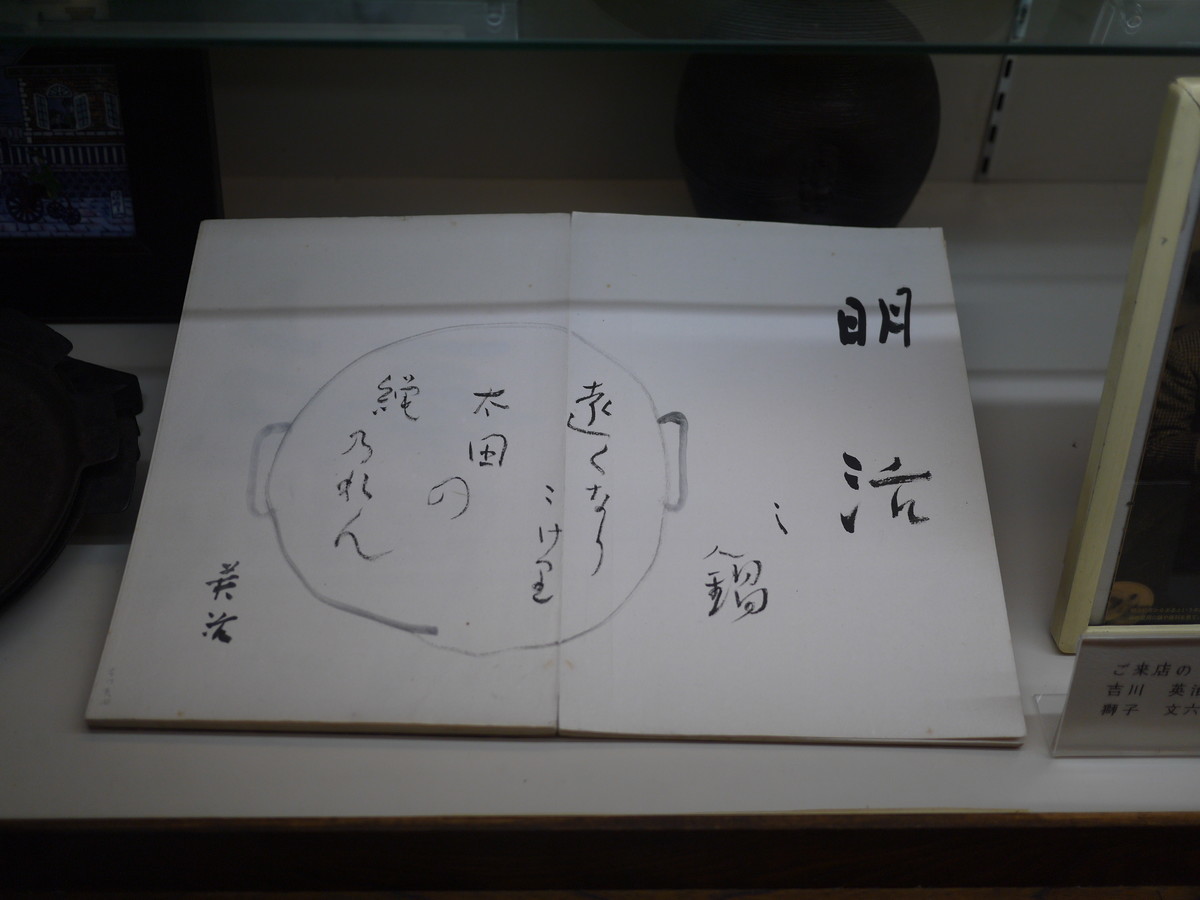 明治
鍋
遠くなり
にけ里
太田の
縄乃れん
英治
ご来店の
吉川 英治
獅子 文六